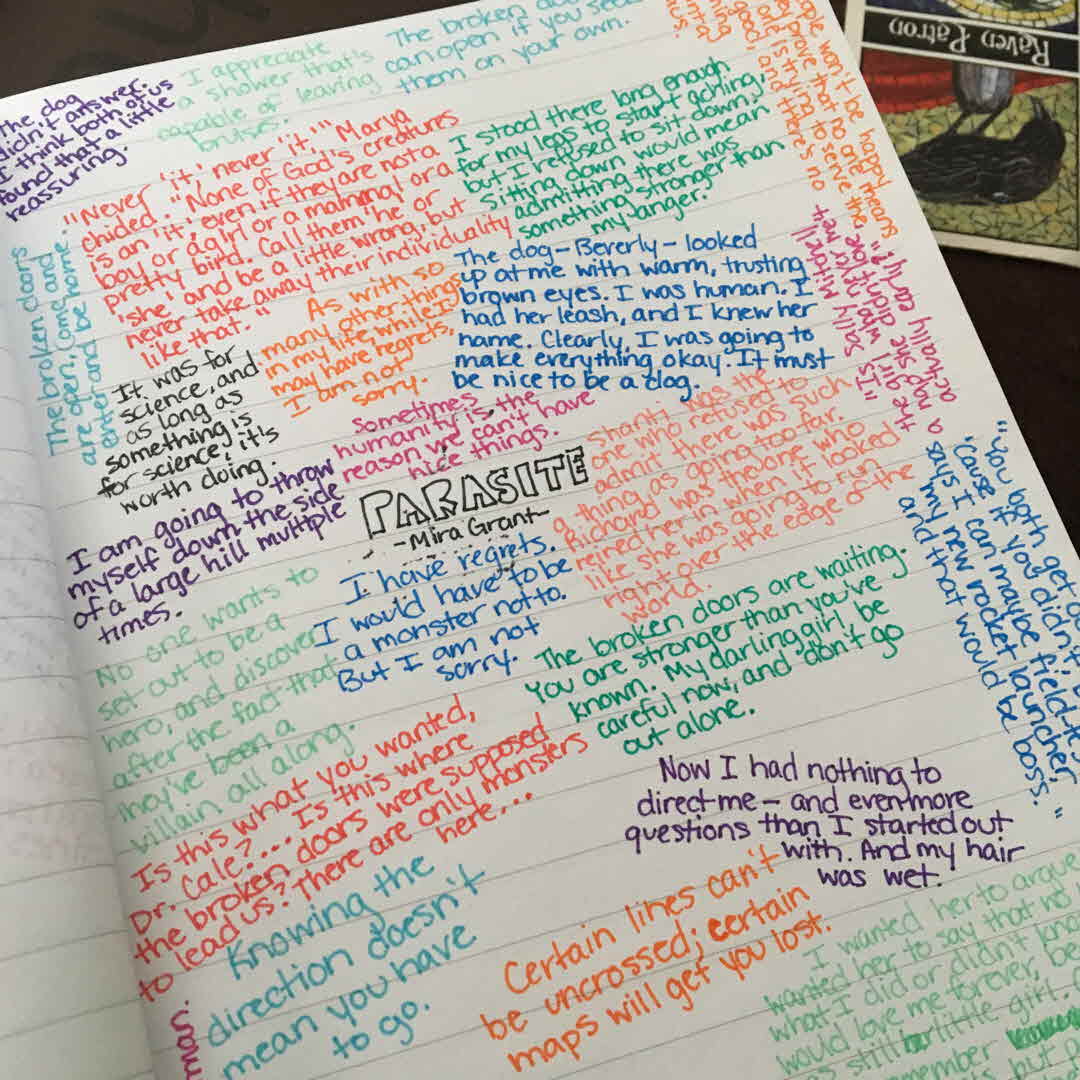 The dog
didn't answer.
I think both of us
found that a little
reassuring.
I appreciate
a shower that's
capable of leaving
bruises.
The broken doors
can open if you seek
them on your own.
"Never 'it,' never 'it,'" Marya
chided. "None of God's creatures
is an 'it,' even if they are not a
boy or a girl or a mammal or a
pretty bird. Call them 'he' or
'she' and be a little wrong, but
never take away their individuality
like that."
I stood there long enough
for my legs to start aching,
but I refused to sit down.
Sitting down would mean
admitting there was
something stronger than
my anger.
people won't be happy
prove that no one means
only is trying to serve the
good, and there's no
The broken doors
are open; come and
enter and be home.
As with so
many other things
in my life, while I
may have regrets,
I am not
sorry.
The dog—Beverly—looked
up at me with warm, trusting
brown eyes. I was human. I
had her leash, and I knew her
name. Clearly, I was going to
make everything okay. It must
be nice to be a dog.
"I still say Sally Mitchell
the girl who wasn't
actually
a
It was for
science, and
as long as
something is
for science, it's
worth doing.
sometimes
humanity is the
reason we can't have
nice things.
PARASITE
-Mira Grant-
Shanti was the
one who refused to
admit there was such
a thing as going too far.
Richard was the one who
reined her in when it looked
like she was going to run
right over the edge of the
world.
I am going to throw
myself down the side
of a large hill multiple
times.
"You both get
'Cause if you didn't,
says I can maybe field-te
my new rocket launcher,
and that would be boss."
I have regrets.
I would have to be
a monster not to.
But I am not
sorry.
No one wants to
set out to be a
hero, and discover
after the fact that
they've been a
villain all along.
The broken doors are waiting.
You are stronger than you've
known. My darling girl, be
careful now, and don't go
out alone.
Is this what you wanted,
Dr. Cale?... Is this where
the broken doors were supposed
to lead us? There are only monsters
here...
Now I had nothing to
direct me—and even more
questions than I started out
with. And my hair
was wet.
Knowing the
direction doesn't
mean you have
to go.
Certain lines can't
be uncrossed; certain
maps will get you lost.
I wanted her to argue
wanted her to say that no
what I did or didn't kno
would love me forever, be
as still her little girl.
member
but
mas.
Raven Patron